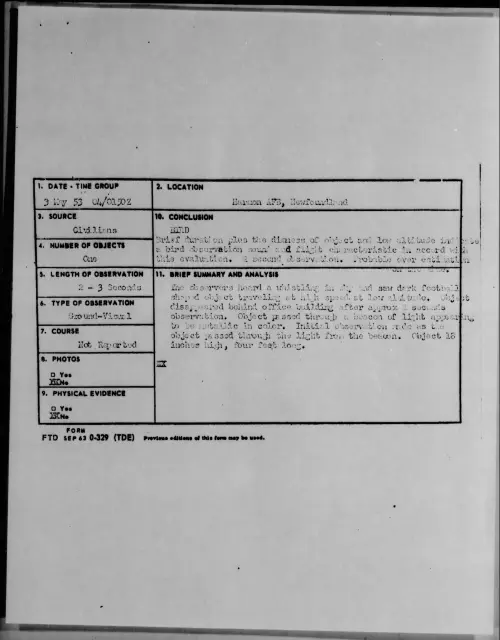 1. DATE - TIME GROUP
3 May 53 04/0150Z
2. LOCATION
Harmon AFB, Newfoundland
3. SOURCE
Civilians
10. CONCLUSION
BIRD
Brief duration plus the dimness of object and low altitude indicate
a bird observation and flight characteristic in accord with
this evaluation. 2 second observation. Probable over estimation
on the time.
4. NUMBER OF OBJECTS
One
5. LENGTH OF OBSERVATION
2 - 3 Seconds
11. BRIEF SUMMARY AND ANALYSIS
observers heard a whistling in sky and saw dark football
shaped object traveling at high speed at low altitude. Object
disappeared behind office building after approx 2 seconds
observation. Object passed through a beacon of light appearing
to be metallic in color. Initial observation made as the
object passed through the light from the beacon. Object 18
inches high, four feet long.
6. TYPE OF OBSERVATION
Ground-Visual
7. COURSE
Not Reported
8. PHOTOS
□ Yes
No
9. PHYSICAL EVIDENCE
□ Yes
No
FORM
FTD SEP 63 0-329 (TDE) Previous editions of this form may be used.